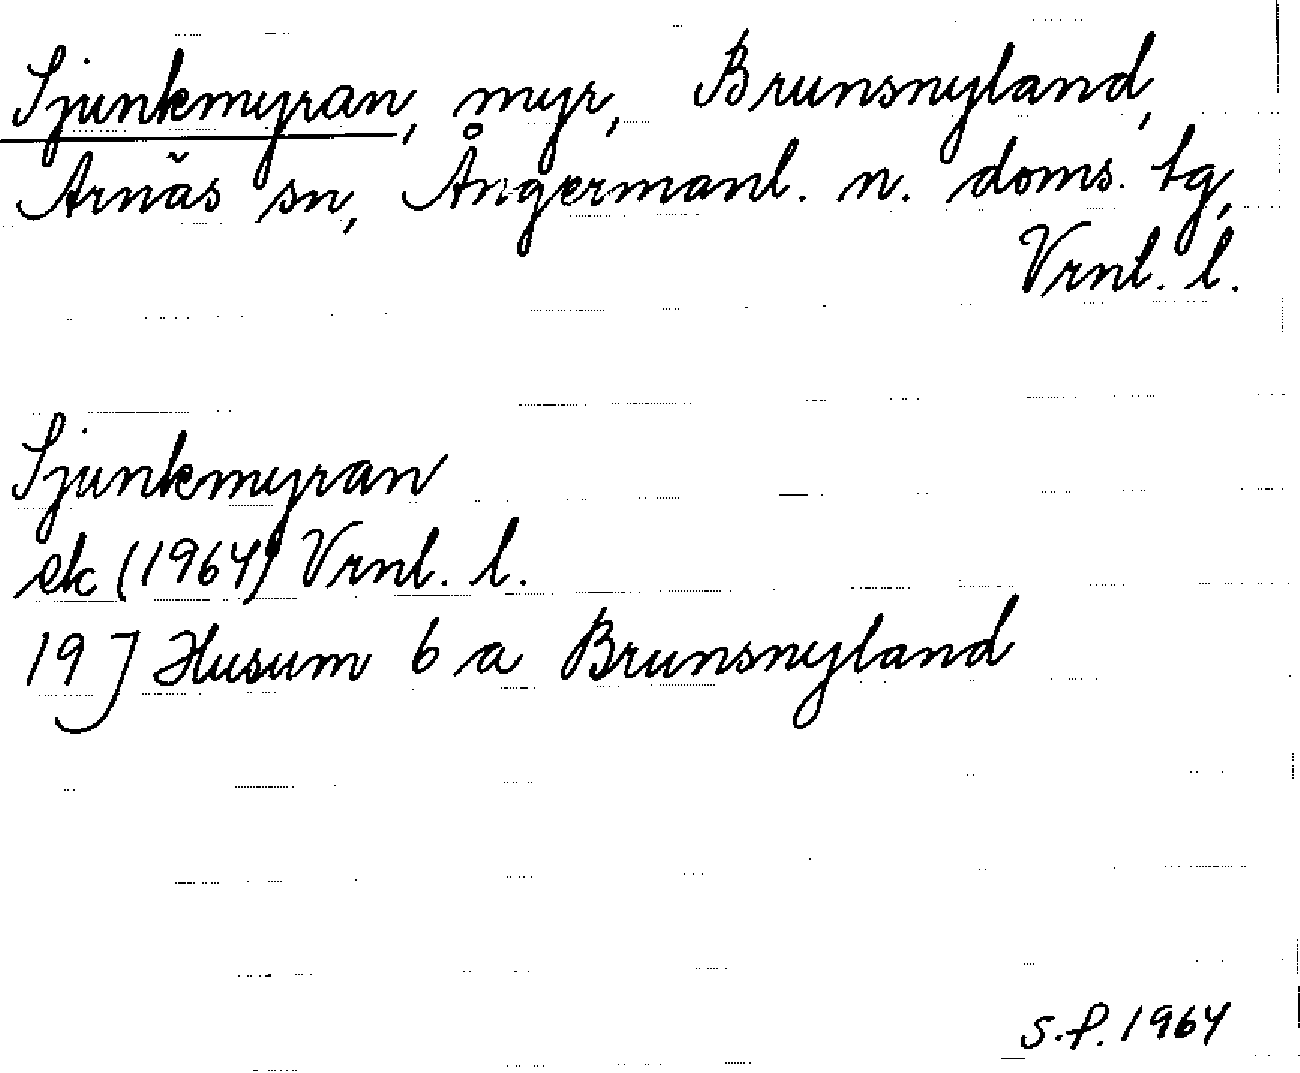 Sjunkmyran, myr, Brunsnyland,
Arnäs sn, Ångermanl. n. doms. tg,
Vrnl. l.
Sjunkmyran
ek (1964) Vrnl. l.
19 J Husum 6 a Brunsnyland
S.P. 1964